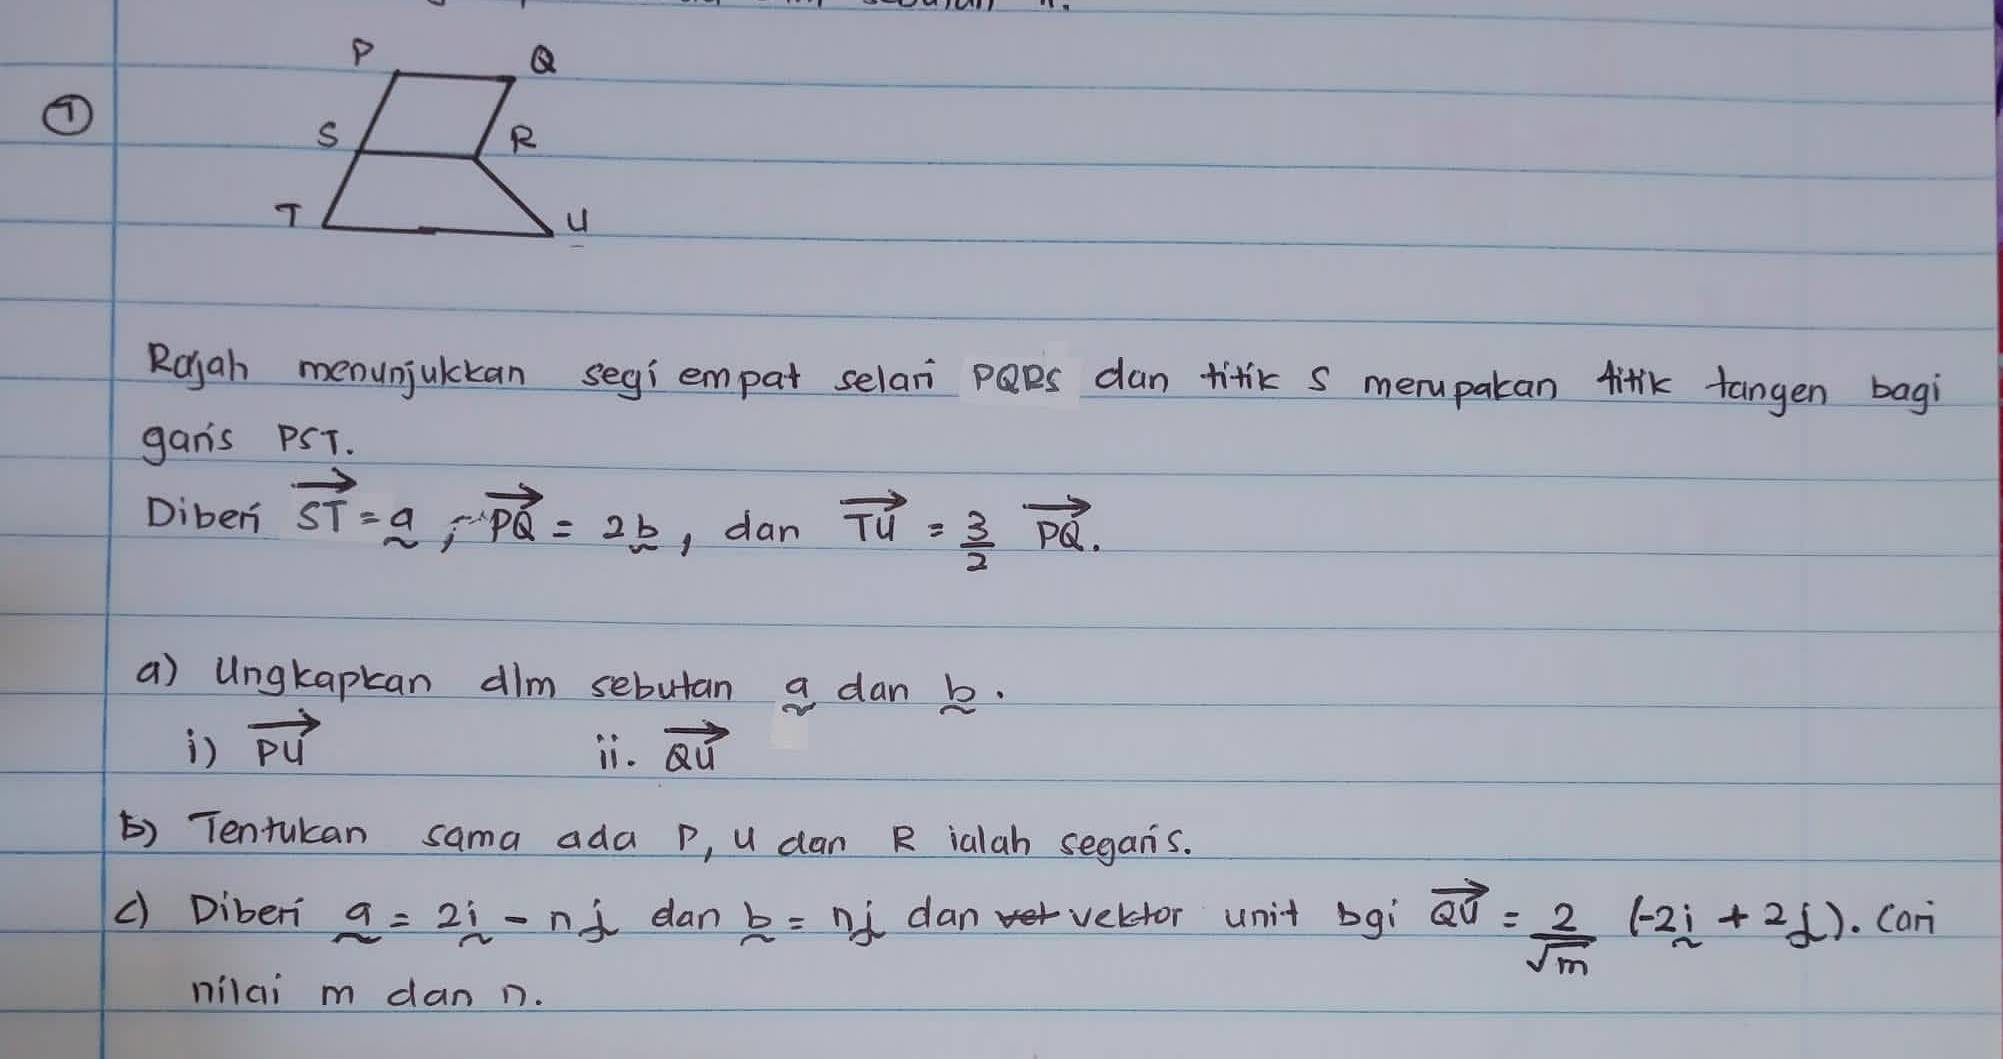 P Q
①
S R
T U
Rajah menunjukkan segi empat selari PQRS dan titik S merupakan titik tangen bagi
garis PST.
Diberi ST→ = a̰ , PQ→ = 2b̰ , dan TU→ = 3/2 PQ→.
a) Ungkapkan dlm sebutan a̰ dan b̰ .
i) PU→ ii. QU→
b) Tentukan sama ada P, U dan R ialah segaris.
c) Diberi a̰ = 2ḭ - nj̰ dan b̰ = nj̰ dan vektor unit bgi QU→ = 2/√m (-2ḭ + 2j̰). Cari
nilai m dan n.